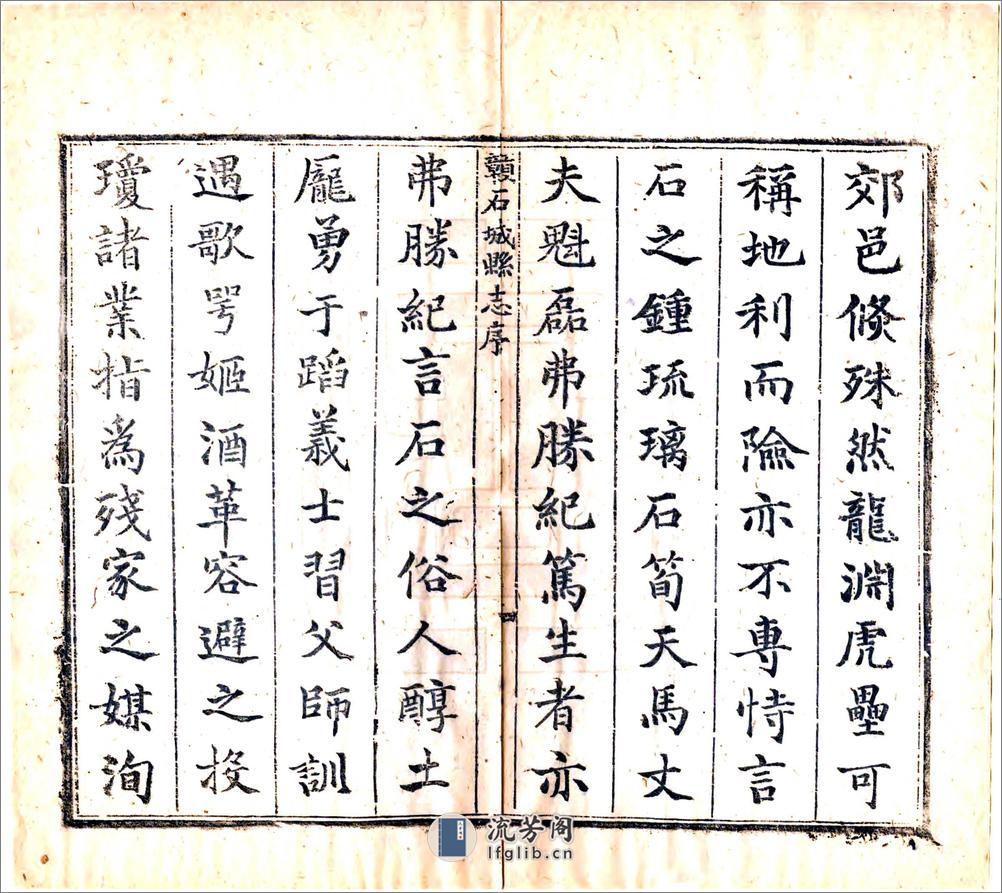 郊邑倐殊然龍淵虎壘可
稱地利而險亦不專恃言
石之鍾琉璃石筍天馬丈
夫魁磊弗勝紀篤生者亦
贛石城縣志序
四
弗勝紀言石之俗人醇土
厖勇于蹈義士習父師訓
遇歌咢姬酒革容避之投
瓊諸業指為殘家之媒洵
流芳阁
lfglib.cn